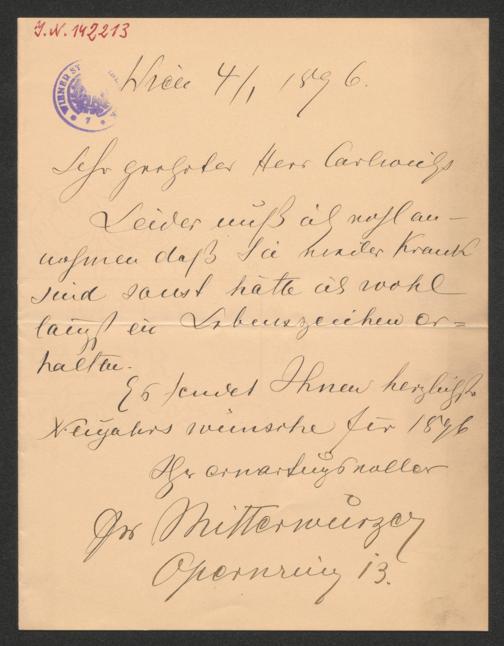 J.N. 142213
WIENER ST
Wien 4/1 1896.
Sehr geehrter Herr
Leider muß ich wohl an-
nehmen daß Sie wieder Krank
sind sonst hätte ich wohl
längst ein Lebenszeichen er=
halten.
Es sendet Ihnen herzlichste
Neujahrs wünsche für 1896
Ihr erwartungsvoller
Mitterwurzer
Opernring 13.